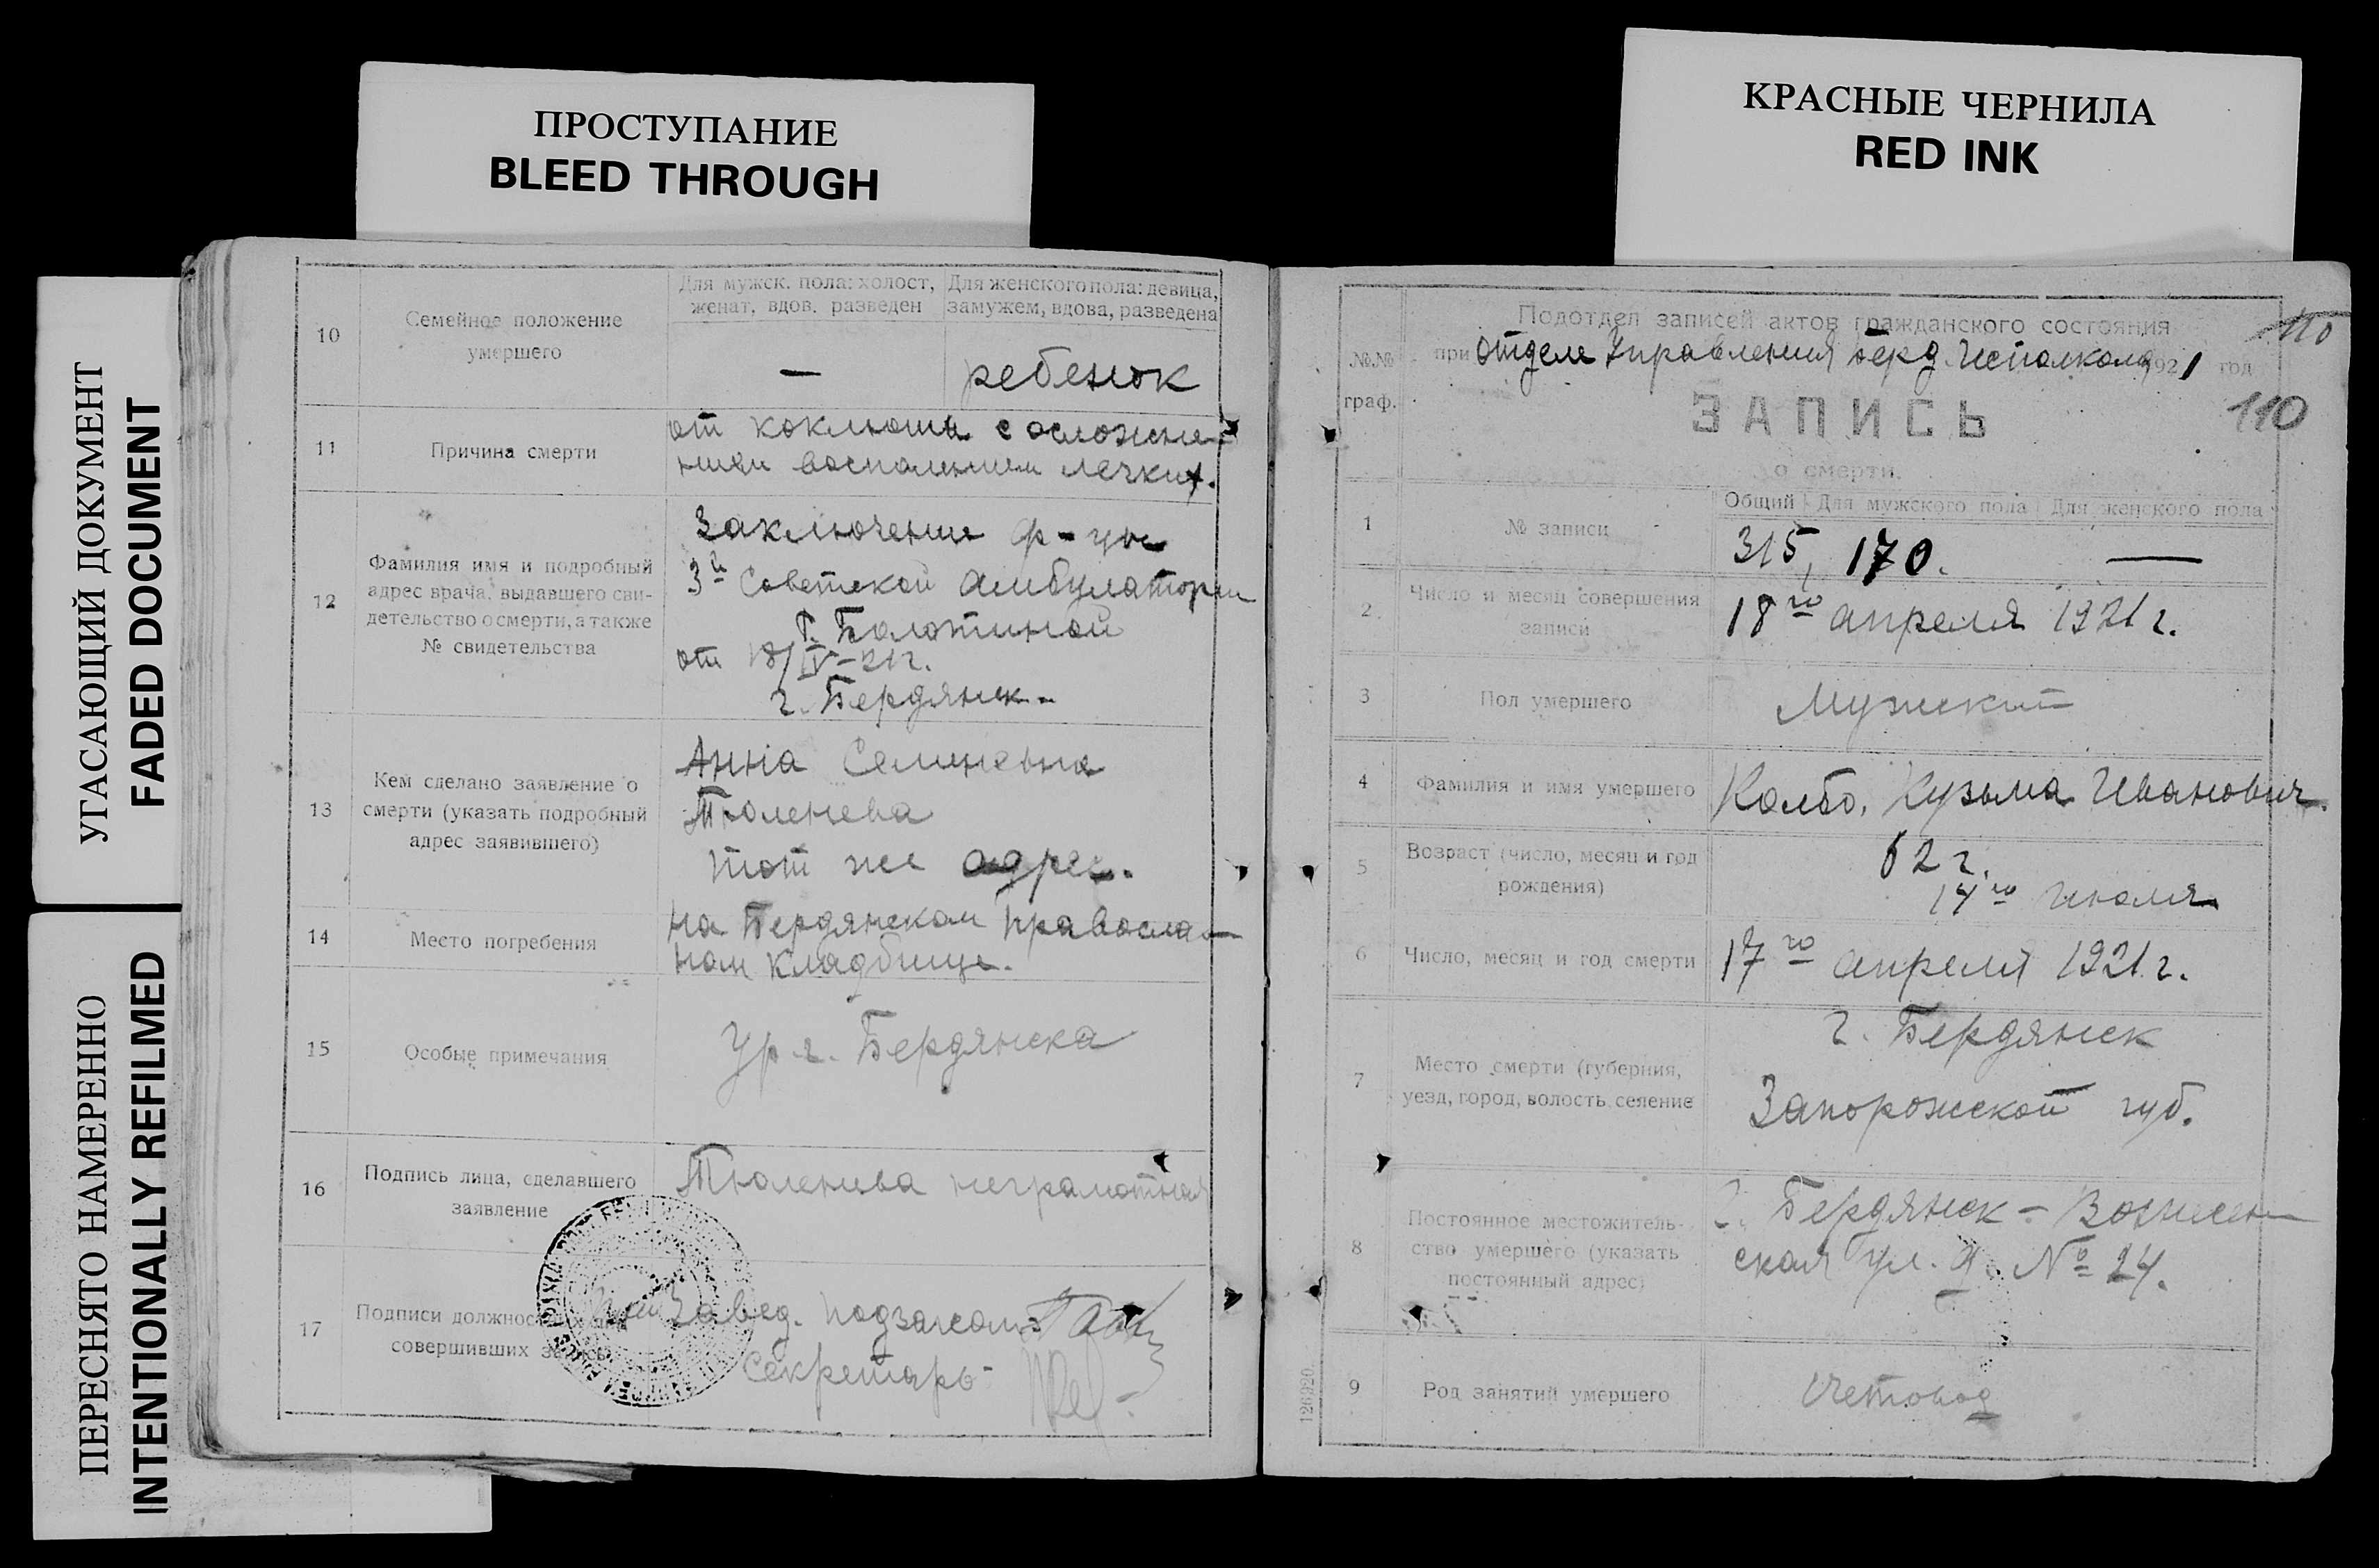 ПРОСТУПАНИЕ
BLEED THROUGH
КРАСНЫЕ ЧЕРНИЛА
RED INK
УГАСАЮЩИЙ ДОКУМЕНТ
FADED DOCUMENT
ПЕРЕСНЯТО НАМЕРЕННО
INTENTIONALLY REFILMED
10
Семейное положение
умершего
Для мужск. пола: холост,
женат, вдов. разведен
Для женского пола: девица,
замужем, вдова, разведена
—
ребенок
11
Причина смерти
от коклюша с осложне-
нием воспалением легких.
12
Фамилия имя и подробный
адрес врача, выдавшего сви-
детельство о смерти, а также
№ свидетельства
Заключение ф-цы
3й Советской Амбулатории
Г. Болотиной
от 18/IV-21г.
г. Бердянск.
13
Кем сделано заявление о
смерти (указать подробный
адрес заявившего)
Анна Семеневна
Тюленева
тот же адрес.
14
Место погребения
на Бердянском православ
ном кладбище.
15
Особые примечания
Ур г. Бердянска
16
Подпись лица, сделавшего
заявление
Тюленева неграмотная
17
Подписи должностных лиц
совершивших запись
Завед. подзагсом
Секретарь
Подотдел записей актов гражданского состояния
№№
граф.
при отделе Управления Берд. Исполкома 1921 год
110
110
ЗАПИСЬ
о смерти.
1
№ записи
Общий Для мужского пола Для женского пола
315, 170. —
2
Число и месяц совершения
записи
18го апреля 1921 г.
3
Пол умершего
Мужской
4
Фамилия и имя умершего
Колбо, Кузьма Иванович.
5
Возраст (число, месяц и год
рождения)
62 г.
14го июля
6
Число, месяц и год смерти
17го апреля 1921 г.
7
Место смерти (губерния,
уезд, город, волость, селение
г. Бердянск
Запорожской губ.
8
Постоянное местожитель-
ство умершего (указать
постоянный адрес)
г. Бердянск - Вознесен
ская ул. д. № 24.
9
Род занятий умершего
Счетовод
126920.